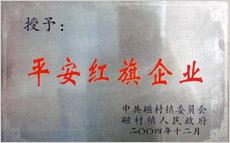 授予：
平安红旗企业
中共磁村镇委员会
磁村镇人民政府
二〇〇四年十二月